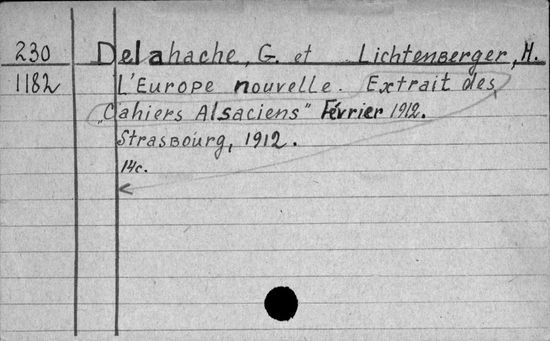 230 Delahache, G. et Lichtenberger, H.
1182 L'Europe nouvelle. Extrait des
„Cahiers Alsaciens" Février 1912.
Strasbourg, 1912.
14c.